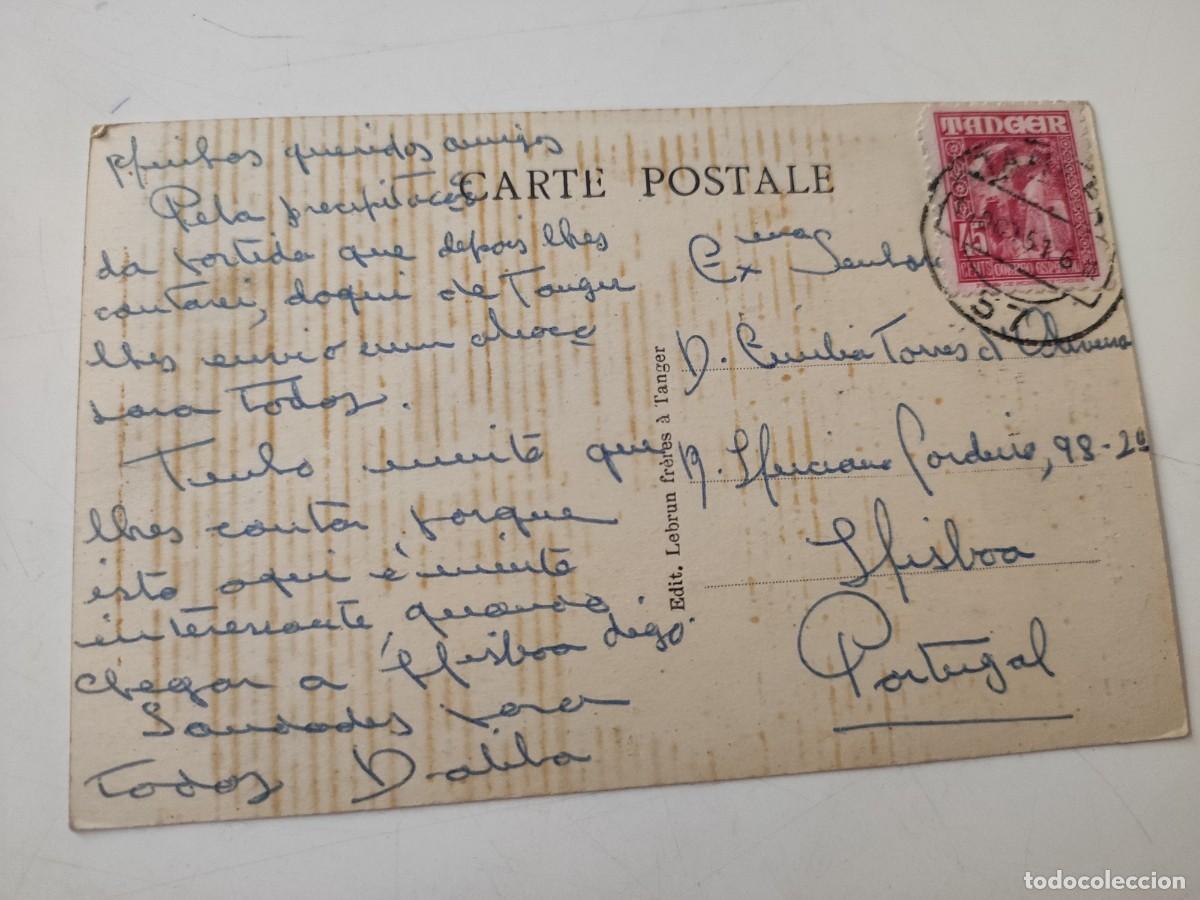 Minhas queridos amigos
Pela precipitação
da partida que depois lhes
contarei, daqui de Tanger
lhes envio um abraço
para todos.
Tenho muito que
lhes contar porque
isto aqui é muito
interessante, quando
chegar a Lisboa digo.
Saudades para
todos Dalila
CARTE POSTALE
Edit. Lebrun frères à Tanger
TANGER
45
CENTS
Exma Senhora
D. Emilia Torres d'Oliveira
R. Luciano Cordeiro, 98-2º
Lisboa
Portugal
todocoleccion